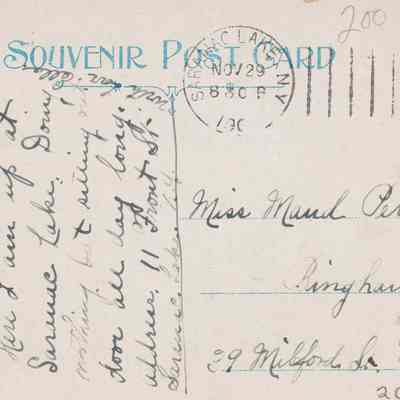 200
SOUVENIR POST CARD
SARANAC LAKE, N.Y.
NOV 29
8 30 P
190
Here I am up at
Sarenac Lake. Doing
nothing but sitting out
door all day long.
address. 11 Front St.
Serenac Lake. N.Y.
with love. Allen
Miss Maud Per
Bingha
39 Milford St.
20